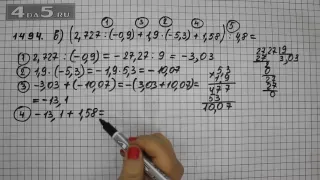 4ua5.ru
① ③ ② ④ ⑤
1494. Б) (2,727 : (-0,9) + 1,9 · (-5,3) + 1,58) : 4,8 =
① 2,727 : (-0,9) = -27,27 : 9 = -3,03
② 1,9 · (-5,3) = -1,9 · 5,3 = -10,07
③ -3,03 + (-10,07) = -(3,03 + 10,07) =
= -13,1
④ -13,1 + 1,58 =
27,27 9
27 3,03
27
27
0
5,3
1,9
477
53
10,07